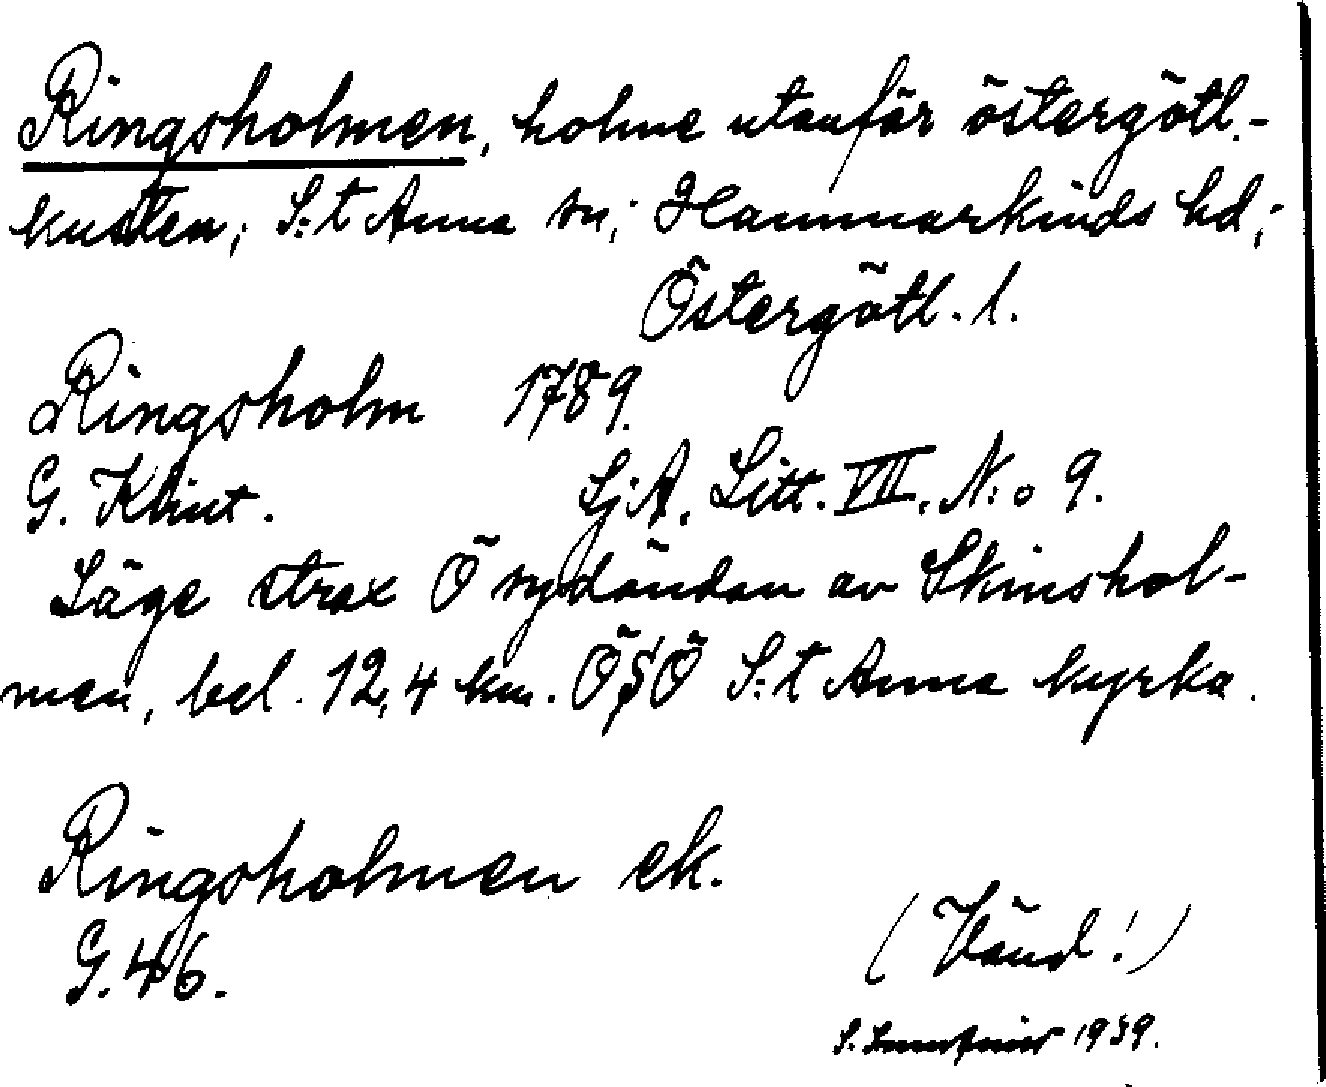 Ringsholmen, holme utanför östergötl.-
kusten; S:t Anna sn; Hammarkinds hd;
Östergötl. l.
Ringsholm 1789.
G. Klint. SjA. Litt. VII. N:o 9.
Läge strax Ö sydändan av Skinshol-
men, bel. 12,4 km. ÖSÖ S:t Anna kyrka.
Ringsholmen ek.
G. 46.
(Vänd!)
S. 1939.